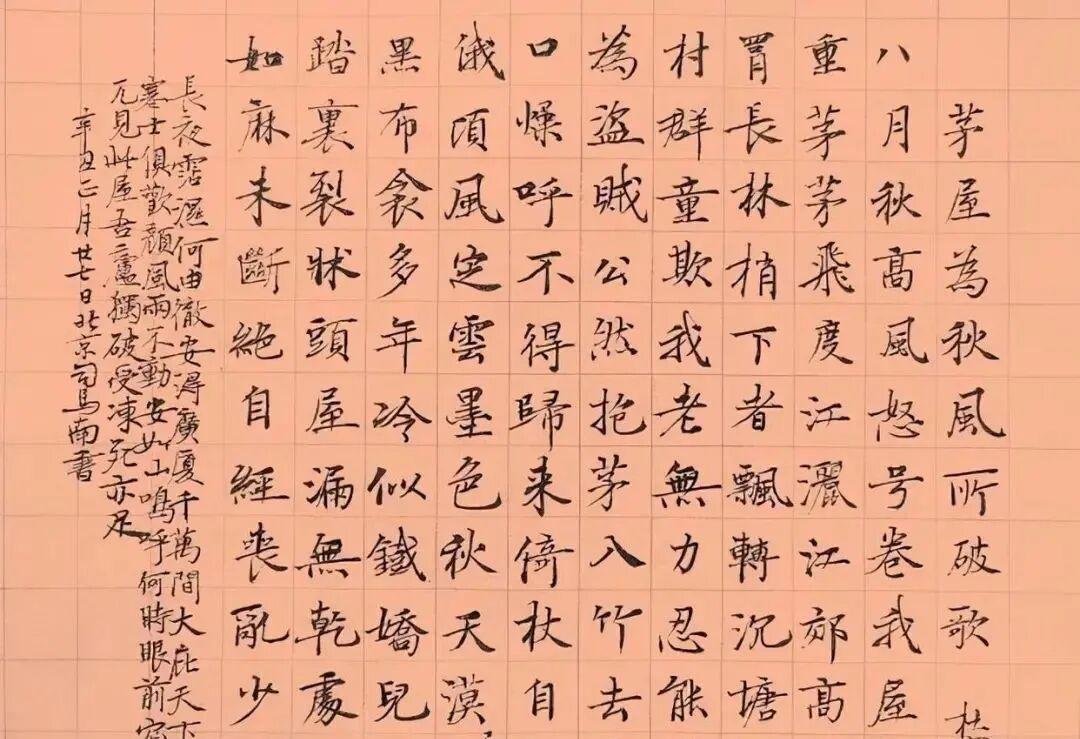 茅屋為秋風所破歌
八月秋高風怒号卷我屋
重茅茅飛度江灑江郊高
罥長林梢下者飄轉沉塘
村群童欺我老無力忍能
為盜賊公然抱茅入竹去
口燥呼不得歸来倚杖自
俄頃風定雲墨色秋天漠
黑布衾多年冷似鐵嬌兒
踏裏裂牀頭屋漏無乾處
如麻未斷絕自經喪亂少
長夜霑濕何由徹安得廣厦千萬間大庇天下
寒士俱歡顏風雨不動安如山鳴呼何時眼前
兀見此屋吾廬獨破受凍死亦足
辛丑正月廿七日北京司馬南書